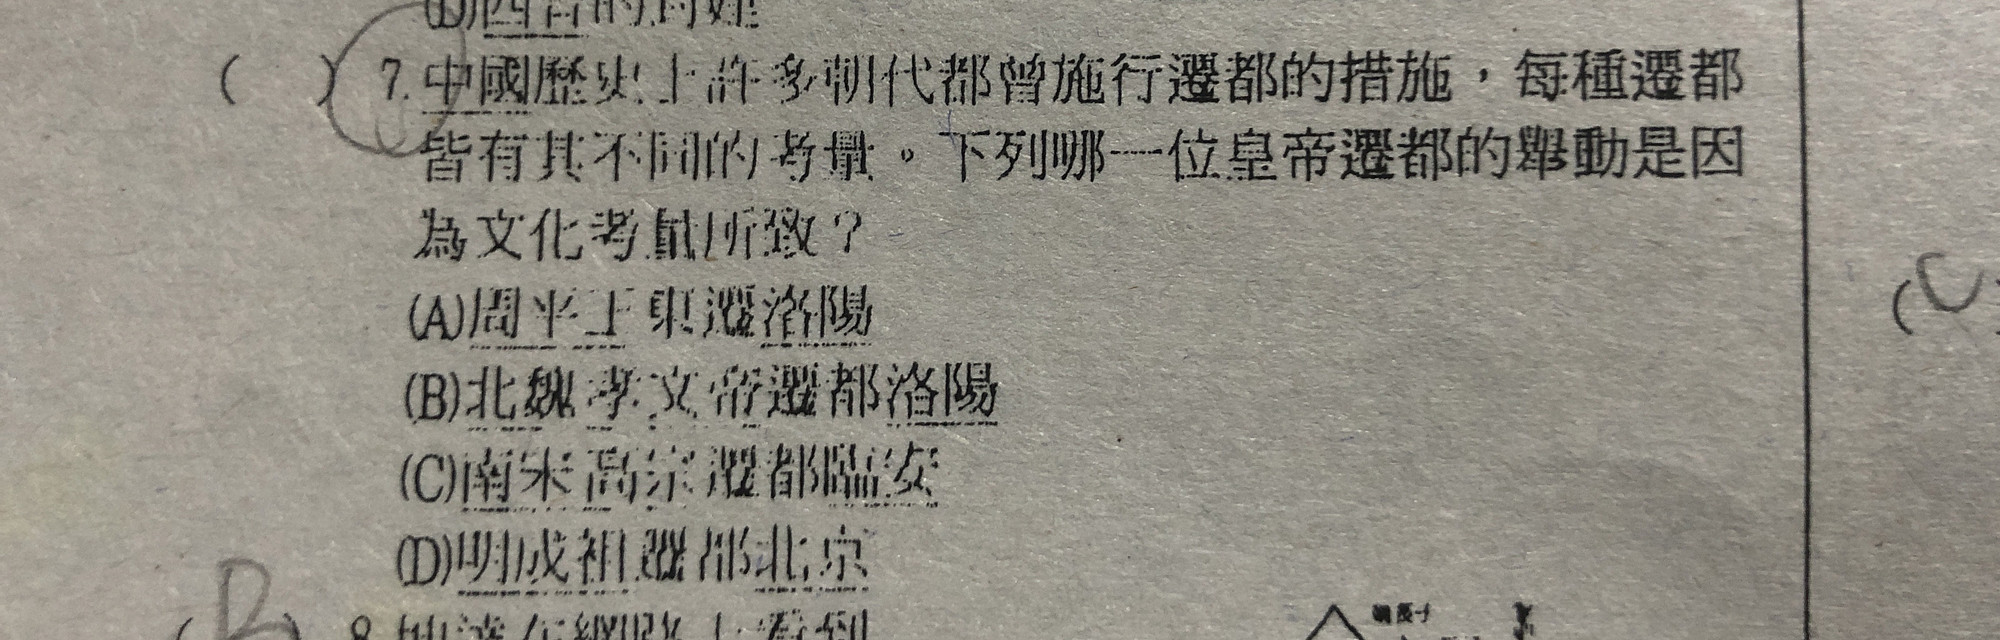 ( )7.中國歷史上許多朝代都曾施行遷都的措施，每種遷都
皆有其不同的考量。下列哪一位皇帝遷都的舉動是因
為文化考量所致？
(A)周平王東遷洛陽
(B)北魏孝文帝遷都洛陽
(C)南宋高宗遷都臨安
(D)明成祖遷都北京
(B) 8.
(C)